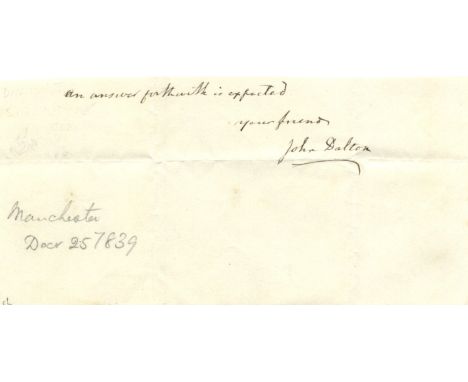 an answer forthwith is expected
your friend
John Dalton
Manchester
Decr 25 1839